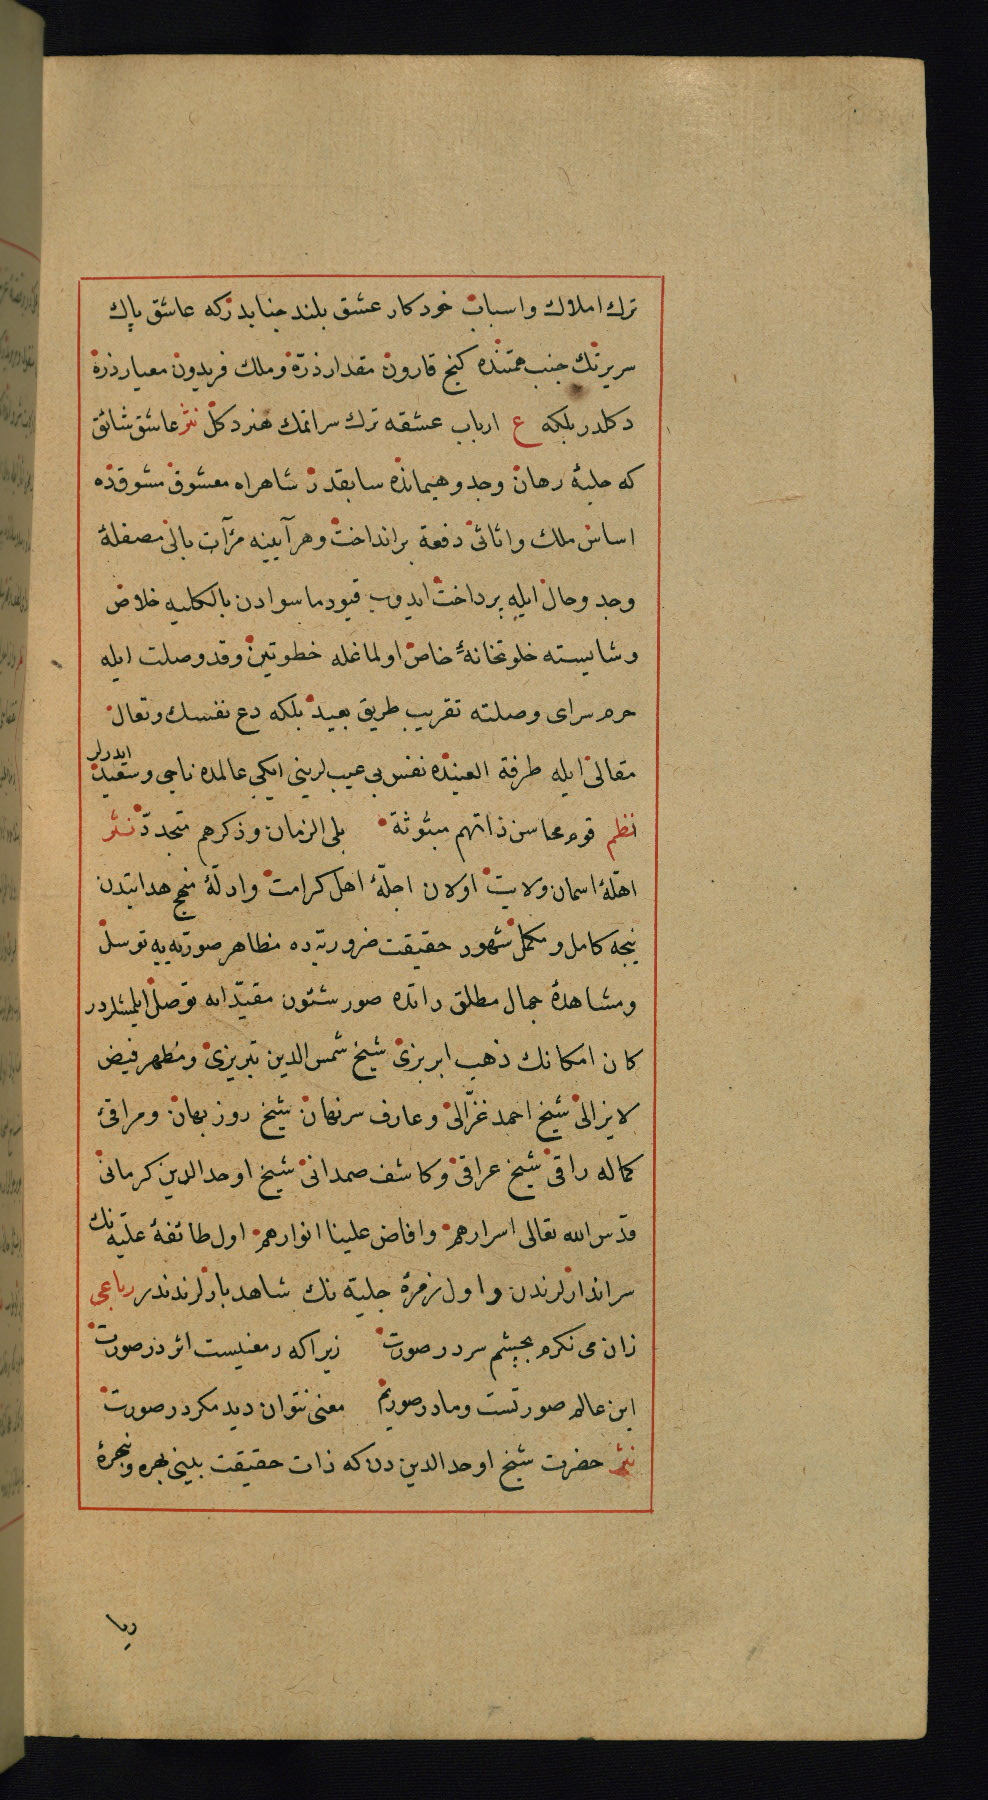 ترك املاك واسباب خودكار عشق بلند جنابدركه عاشق پاك
سريرتك جنب همتنده كنج قارون مقدار ذرّه وملك فريدون معيار ذرة
دكلدر بلكه ع ارباب عشقه ترك سراتمك هنر دكل نثر عاشق شائق
كه حلبهٔ رهان وجد وهيمانده سابقدر شاهراه معشوق مشوقده
اساس ملك واثاثى دفعة برانداخت وهرآيينه مرآت بالى مصقلهٔ
وجد وحال ايله پرداخت ايدوب قيود ماسوادن بالكليه خلاص
وشايسته خلوتخانهٔ خاص اولماغله خطوتين وقد وصلت ايله
حرم سراى وصلته تقريب طريق بعيد بلكه دع نفسك وتعال
مقالى ايله طرفة العينده نفس بى عيب لرينى ايكى عالمده ناجى وسعيد ايدرلر
نظم قوم محاسن ذاتهم مبثوثة بلى الزمان وذكرهم متجدد نثر
اهلّهٔ اسمان ولايت اولان اجلّهٔ اهل كرامت وادلّهٔ منهج هدايتدن
نيجه كامل ومكمل شهود حقيقت ضروريّه ده مظاهر صوريّه يه توسل
ومشاهدهٔ جمال مطلق ذاتده صور شئون مقيّدايه توصل ايلمشلردر
كان امكانك ذهب ابريزى شيخ شمس الدين تبريزى ومظهر فيض
لايزالى شيخ احمد غزّالى وعارف سرنهان شيخ روزبهان ومراقئ
كماله راقى شيخ عراقى وكاشف صمدانى شيخ اوحد الدين كرمانى
قدّس الله تعالى اسرارهم وافاض علينا انوارهم اول طائفهٔ عليّه نك
سراندازلرندن واول زمرهٔ جليّه نك شاهد بازلرندندر رباعى
زان مى نكرم بچشم سر در صورت زيراكه ز معنيست اثر در صورت
اين عالم صورتست وما در صوريم معنى نتوان ديد مكر در صورت
نثر حضرت شيخ اوحد الدين دن كه ذات حقيقت بينى بهره وبنجرهٔ
ريا